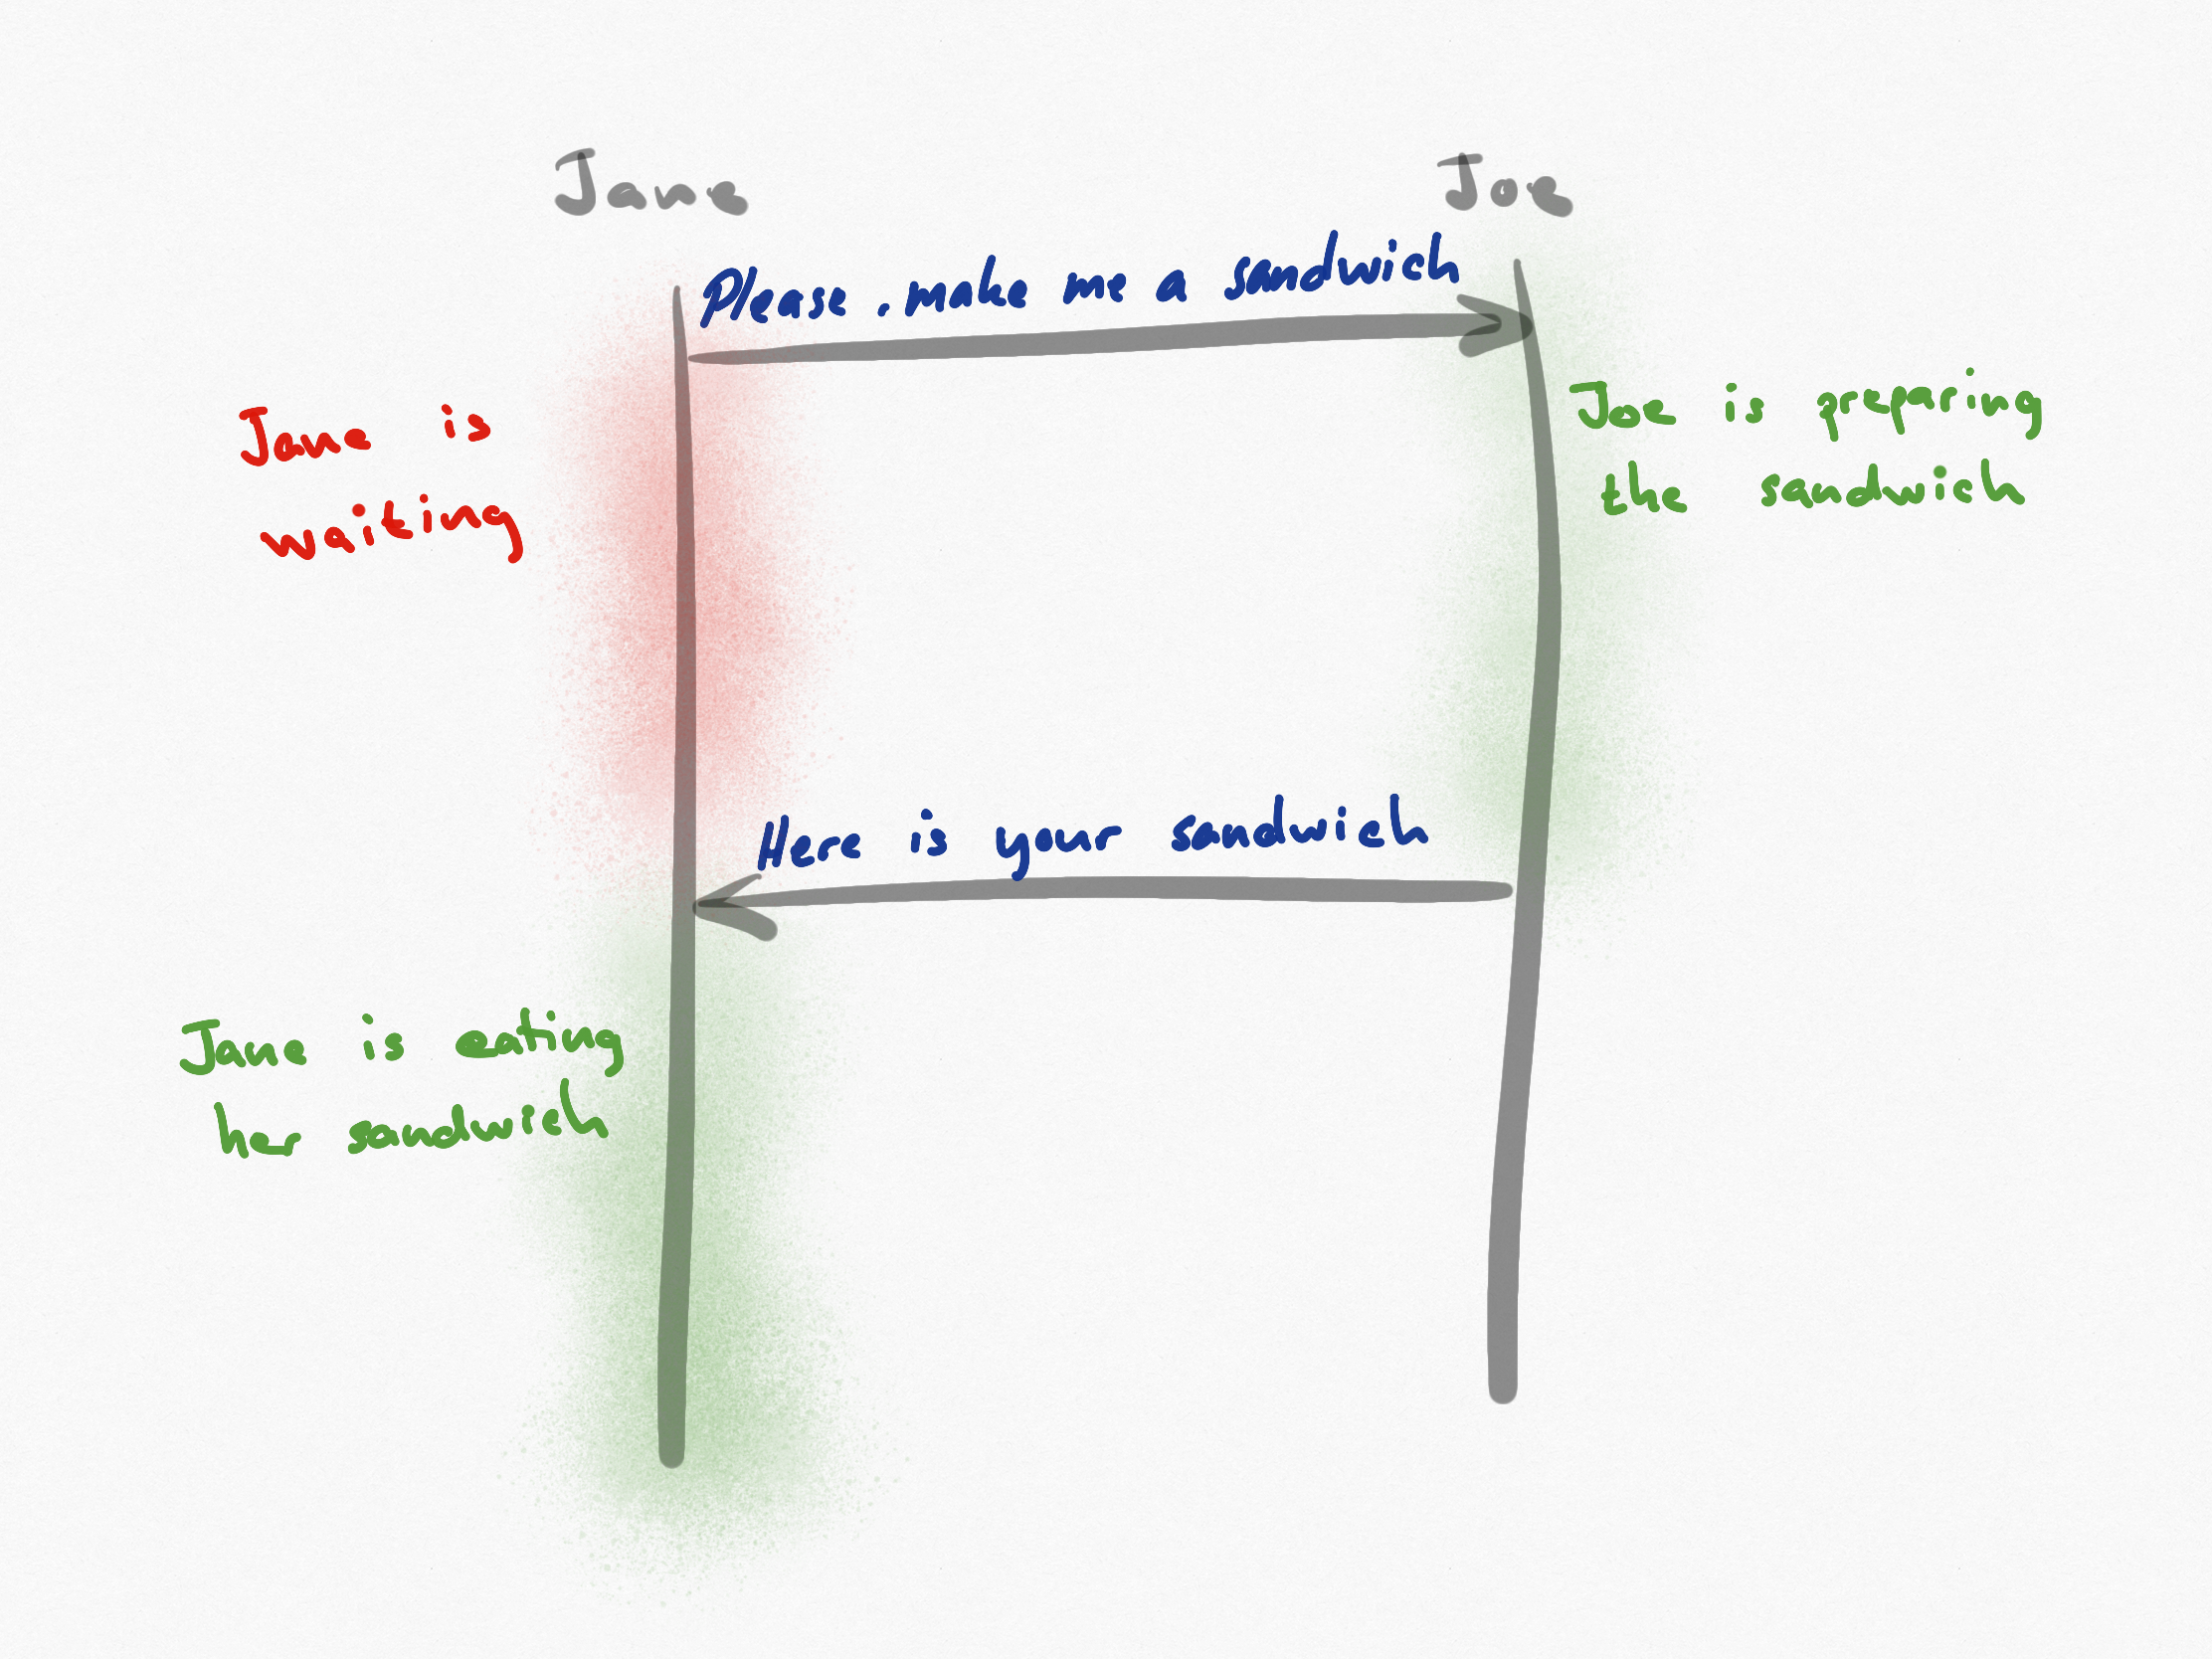 Jane
Joe
Please make me a sandwich
Jane is
waiting
Joe is preparing
the sandwich
Here is your sandwich
Jane is eating
her sandwich